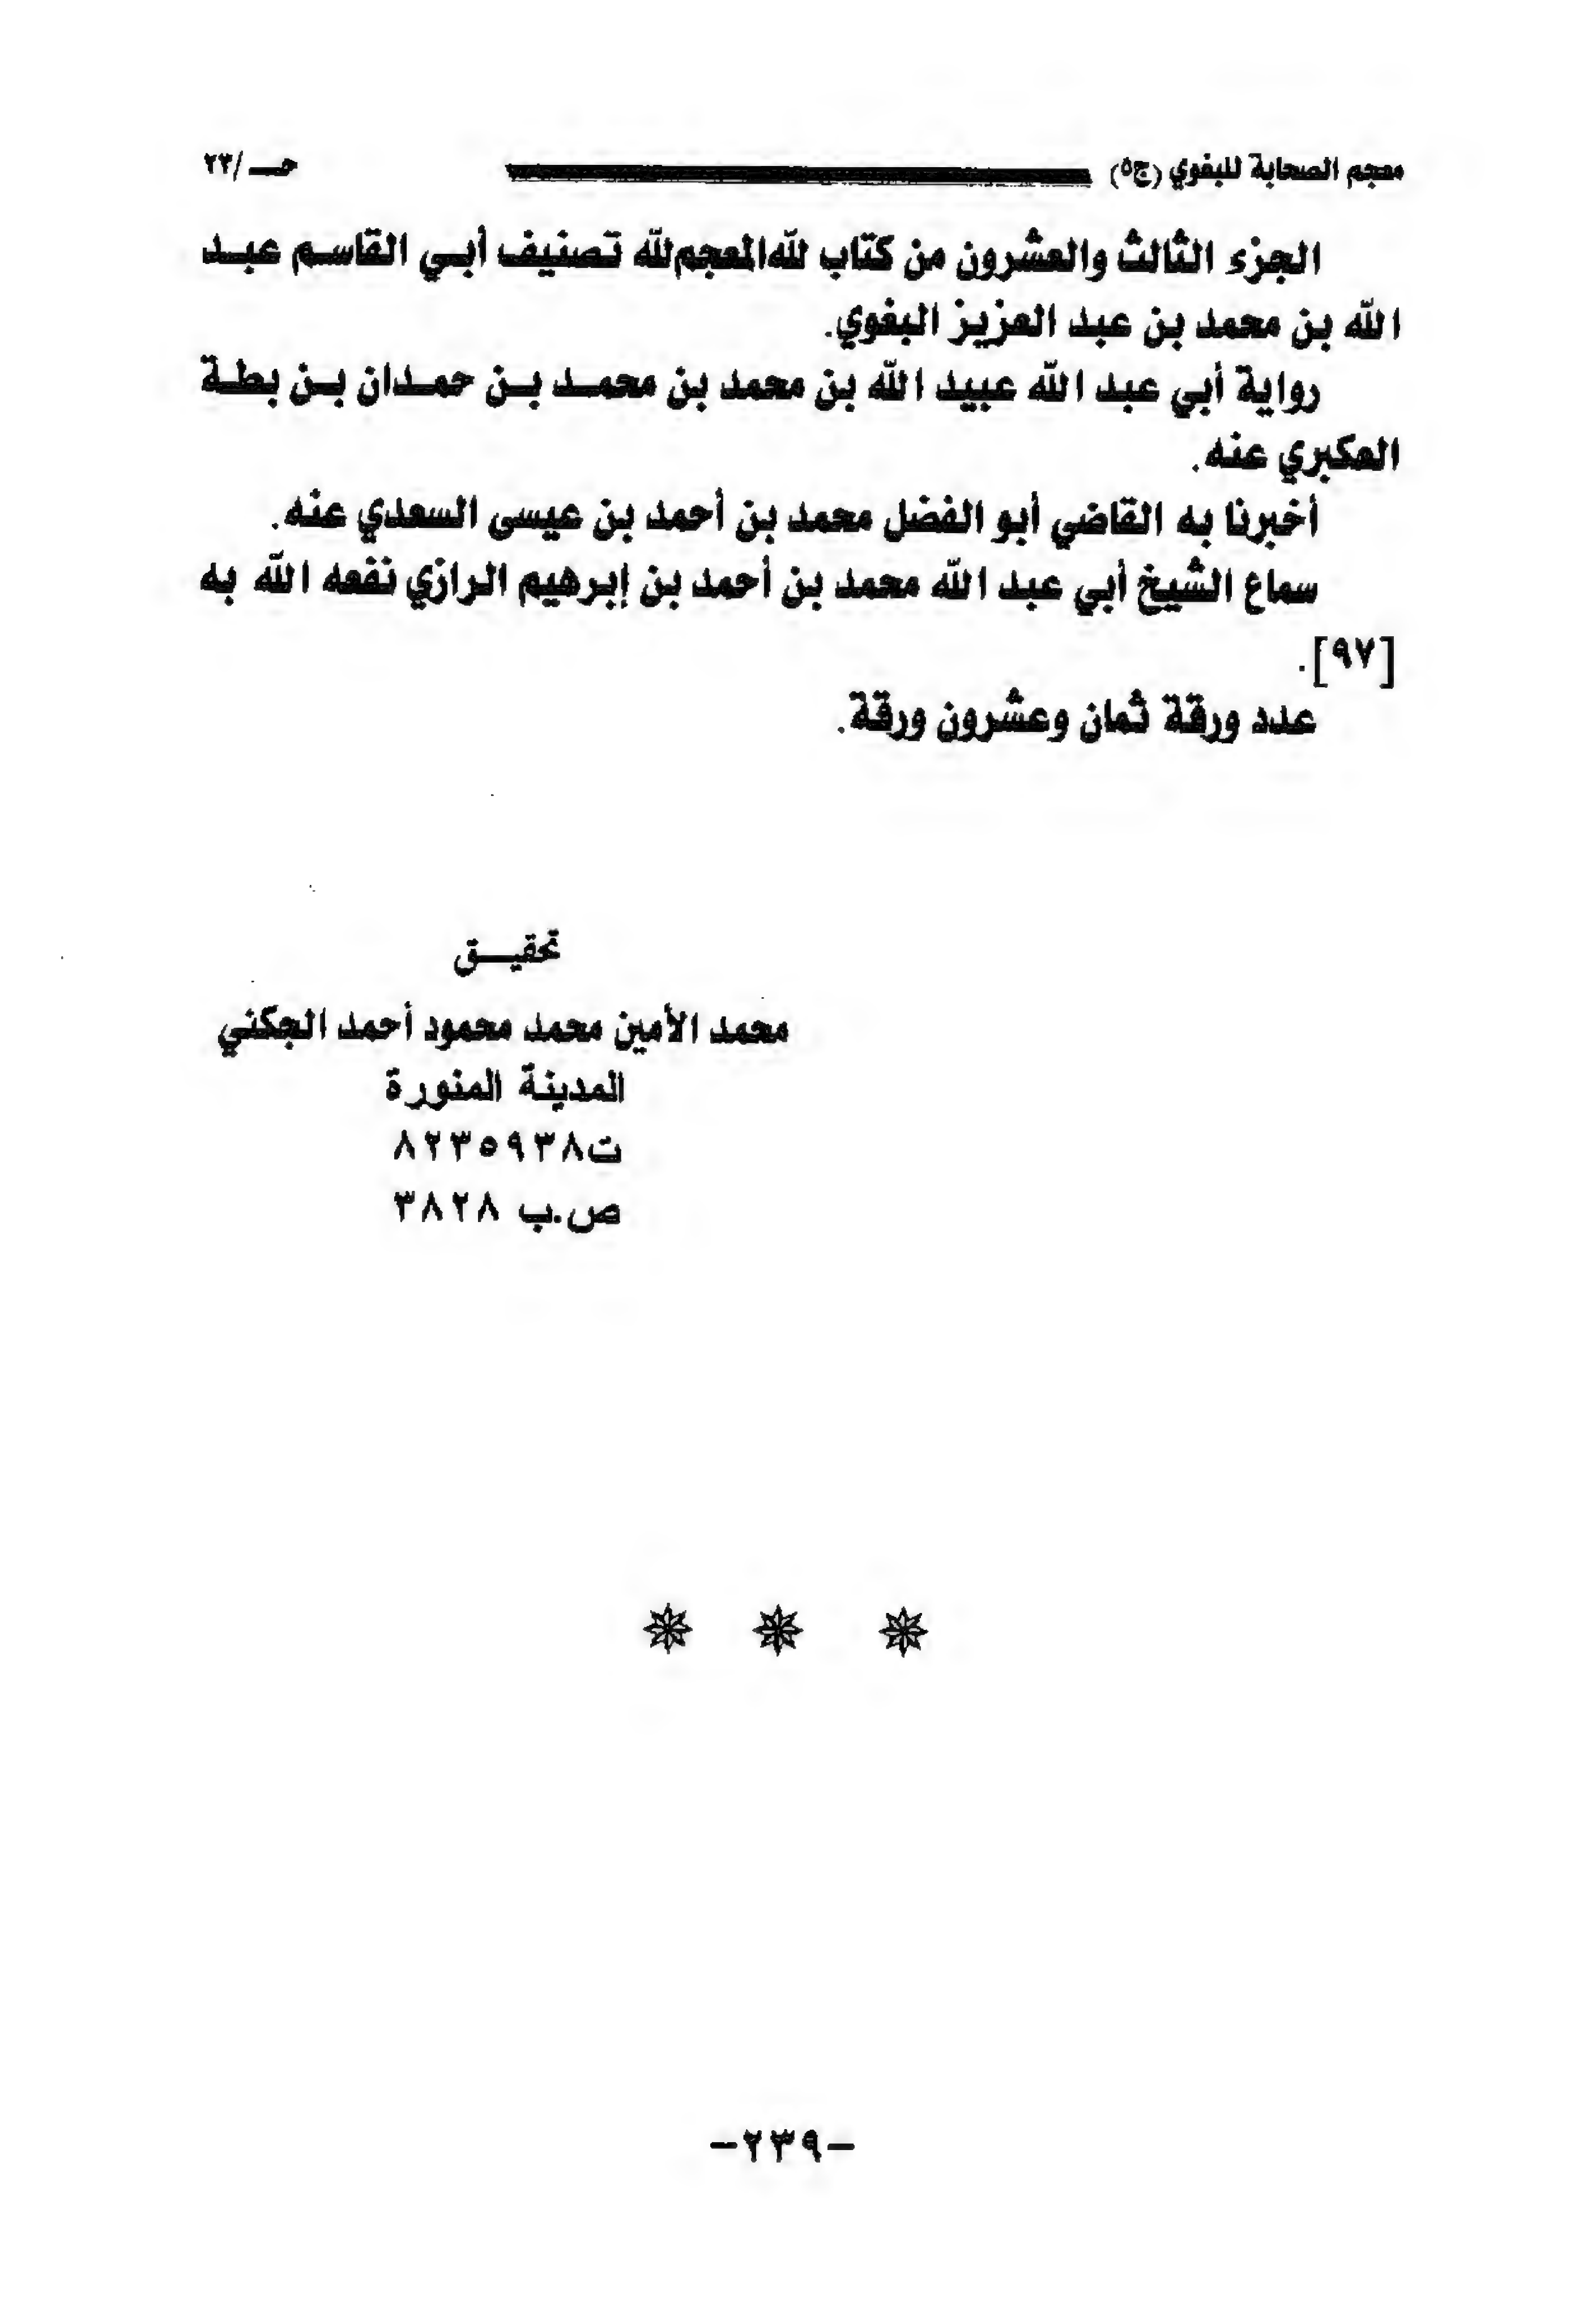 معجم الصحابة للبغوي (ج٥) حـ /٢٣
الجزء الثالث والعشرون من كتاب للهالمعجملله تصنيف أبي القاسم عبد
الله بن محمد بن عبد العزيز البغوي.
رواية أبي عبد الله عبيد الله بن محمد بن محمد بن حمدان بن بطة
العكبري عنه.
أخبرنا به القاضي أبو الفضل محمد بن أحمد بن عيسى السعدي عنه.
سماع الشيخ أبي عبد الله محمد بن أحمد بن إبرهيم الرازي نفعه الله به
[٩٧].
عدد ورقة ثمان وعشرون ورقة.
تحقيـق
محمد الأمين محمد محمود أحمد الجكني
المدينة المنورة
ت٨٢٣٥٩٣٨
ص.ب ٣٨٢٨
-٢٣٩-